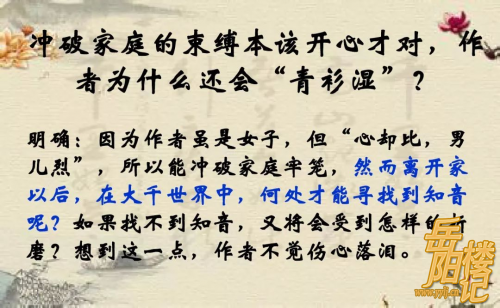 冲破家庭的束缚本该开心才对，作
者为什么还会“青衫湿”？
明确：因为作者虽是女子，但“心却比，男
儿烈”，所以能冲破家庭牢笼，然而离开家
以后，在大千世界中，何处才能寻找到知音
呢？如果找不到知音，又将会受到怎样的折
磨？想到这一点，作者不觉伤心落泪。
岳阳楼记